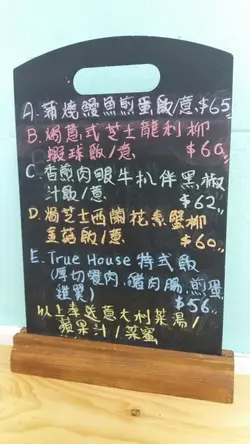 A. 蒲燒鰻魚煎蛋飯/意 $65
B. 焗意式芝士龍利柳
蝦球飯/意 $60
C. 香煎肉眼牛扒伴黑椒
汁飯/意 $62
D. 焗芝士西蘭花素蟹柳
金菇飯/意 $60
E. True House 特式飯
(厚切餐肉、豬肉腸、煎蛋
雞翼) $56
以上奉送意大利菜湯/
蘋果汁/菜蜜